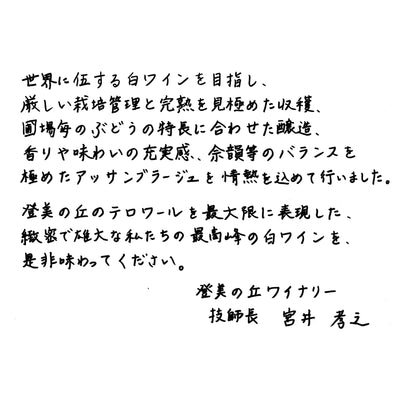 世界に伍する白ワインを目指し、
厳しい栽培管理と完熟を見極めた収穫、
圃場毎のぶどうの特長に合わせた醸造、
香りや味わいの充実感、余韻等のバランスを
極めたアッサンブラージュを情熱を込めて行いました。
登美の丘のテロワールを最大限に表現した、
緻密で雄大な私たちの最高峰の白ワインを、
是非味わってください。
登美の丘ワイナリー
技師長 宮井 孝之